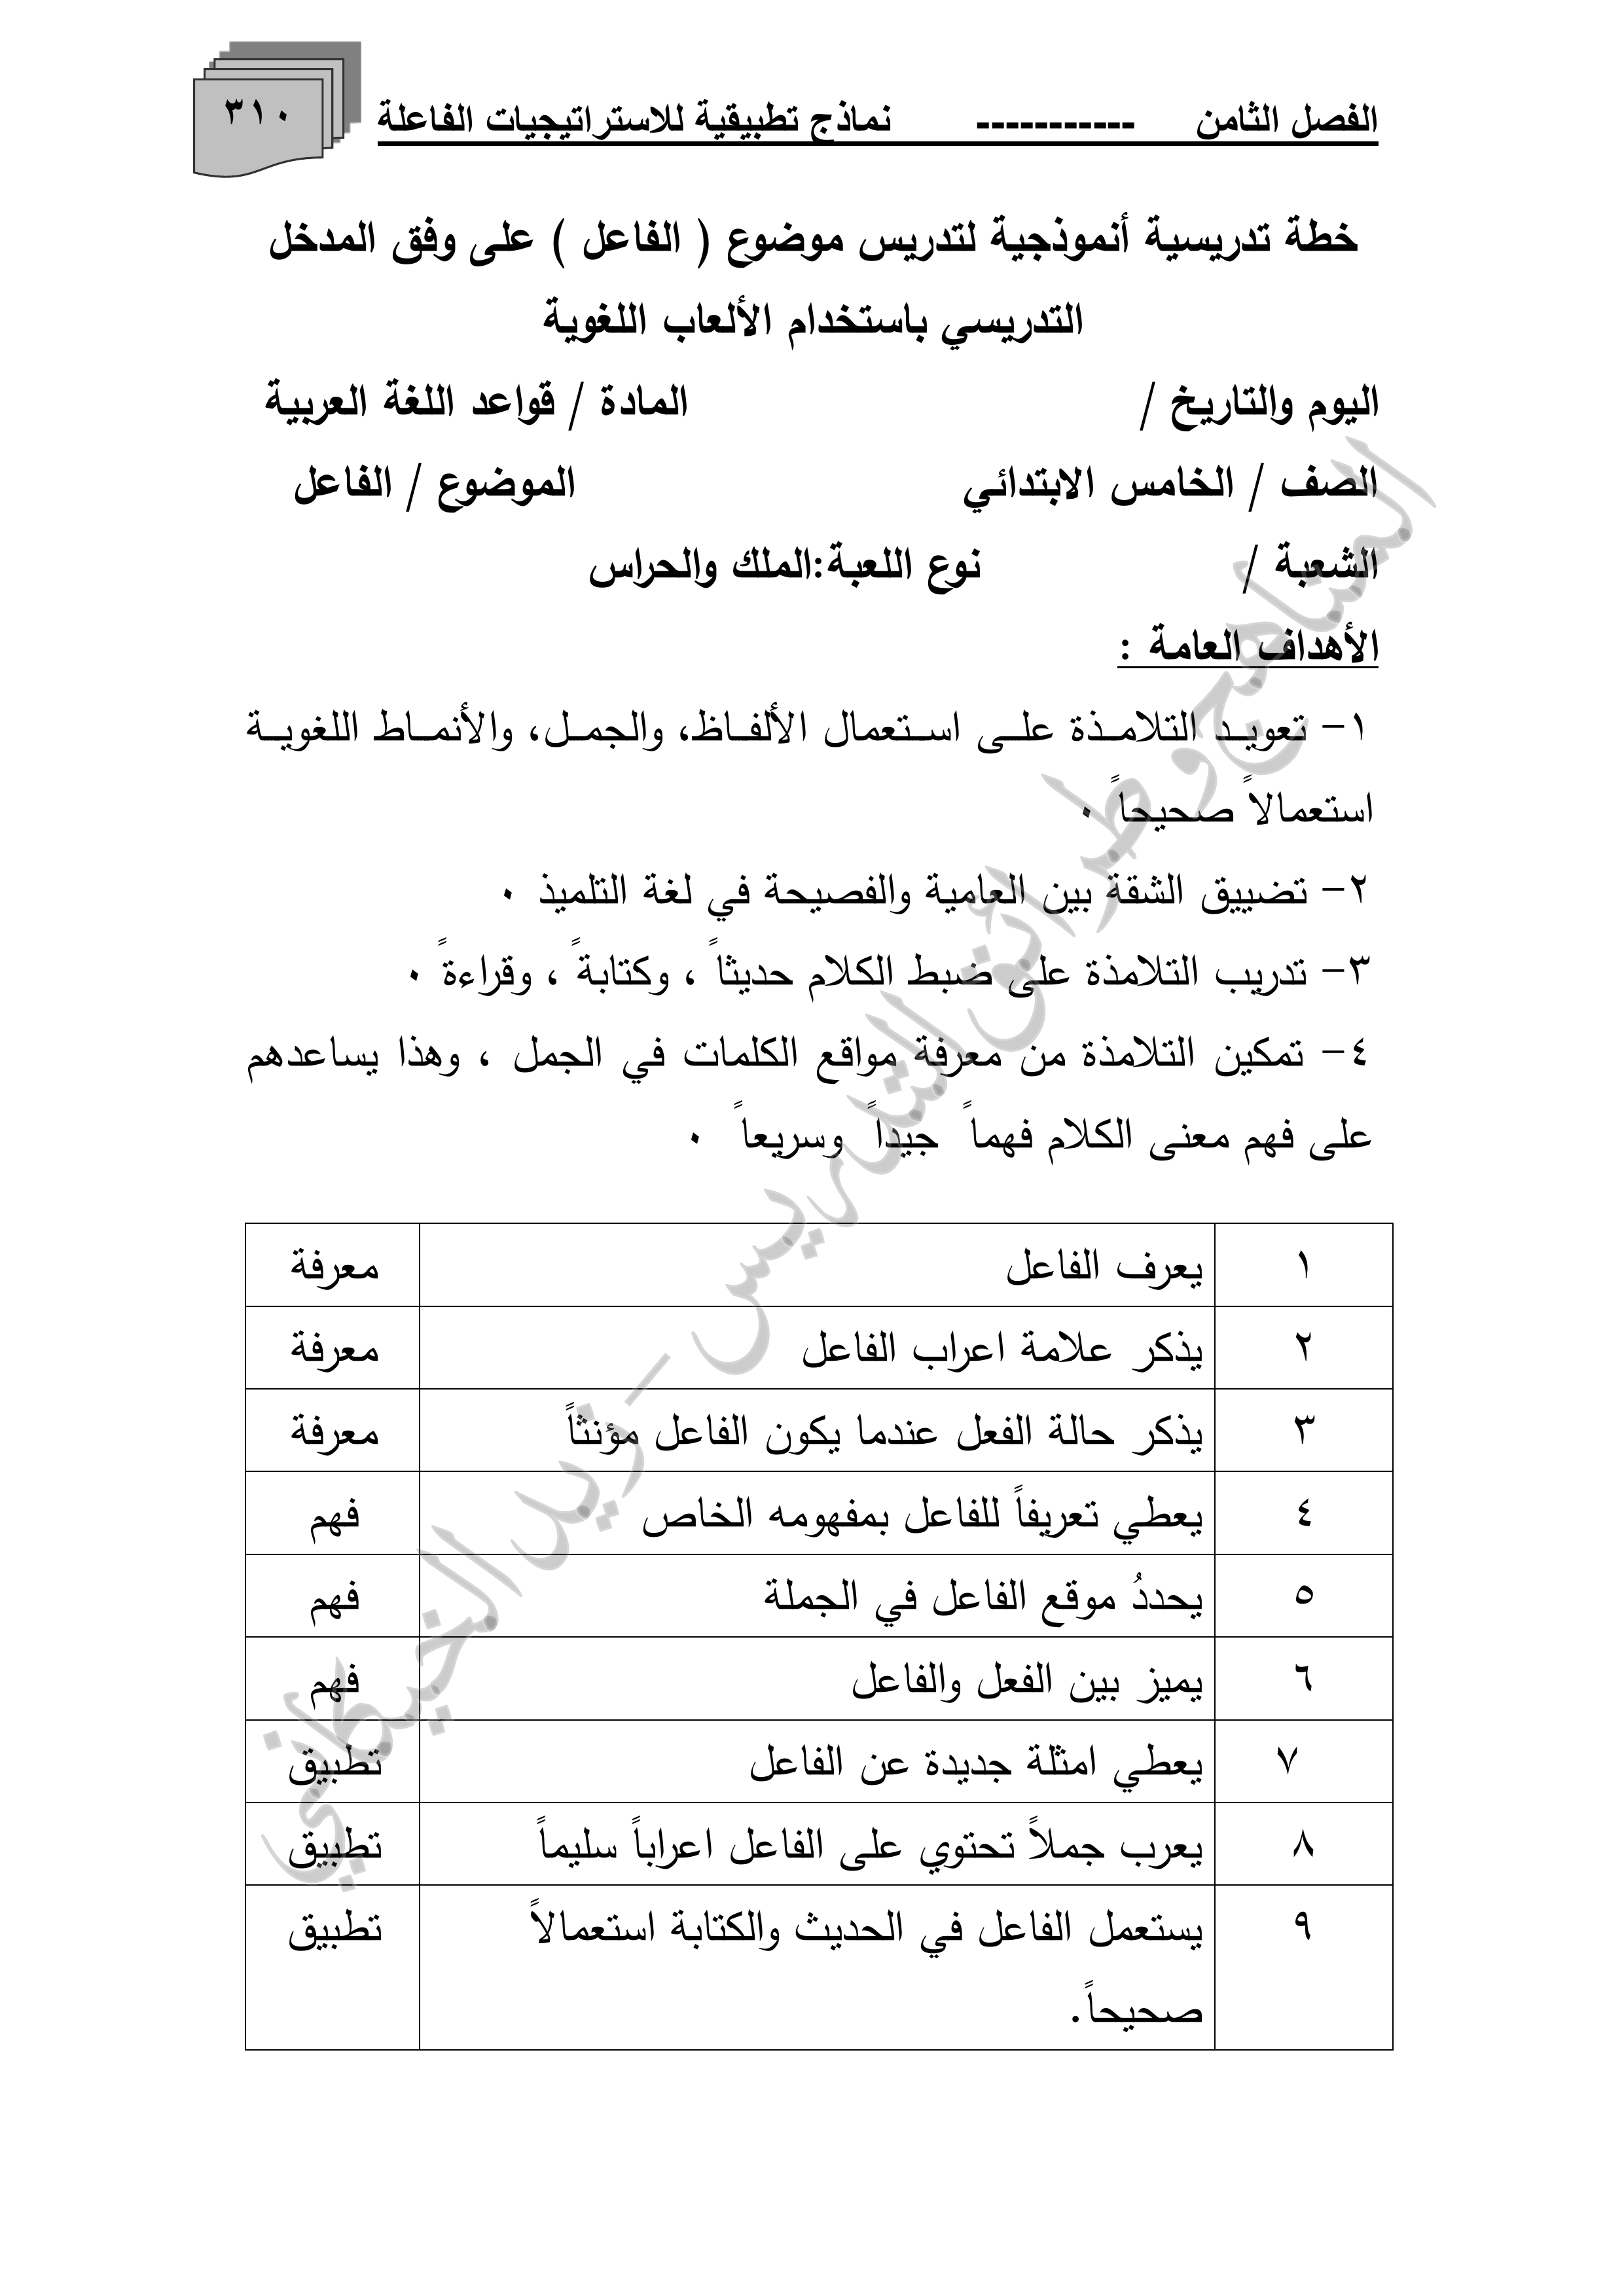 الفصل الثامن ----------- نماذج تطبيقية للاستراتيجيات الفاعلة
٣١٠
خطة تدريسية أنموذجية لتدريس موضوع ( الفاعل ) على وفق المدخل
التدريسي باستخدام الألعاب اللغوية
اليوم والتاريخ / المادة / قواعد اللغة العربية
الصف / الخامس الابتدائي الموضوع / الفاعل
الشعبة / نوع اللعبة:الملك والحراس
الأهداف العامة :
١- تعويد التلامذة على استعمال الألفاظ، والجمل، والأنماط اللغوية
استعمالاً صحيحاً ٠
٢- تضييق الشقة بين العامية والفصيحة في لغة التلميذ ٠
٣- تدريب التلامذة على ضبط الكلام حديثاً ، وكتابةً ، وقراءةً ٠
٤- تمكين التلامذة من معرفة مواقع الكلمات في الجمل ، وهذا يساعدهم
على فهم معنى الكلام فهماً جيداً وسريعاً ٠
١ يعرف الفاعل معرفة
٢ يذكر علامة اعراب الفاعل معرفة
٣ يذكر حالة الفعل عندما يكون الفاعل مؤنثاً معرفة
٤ يعطي تعريفاً للفاعل بمفهومه الخاص فهم
٥ يحددُ موقع الفاعل في الجملة فهم
٦ يميز بين الفعل والفاعل فهم
٧ يعطي امثلة جديدة عن الفاعل تطبيق
٨ يعرب جملاً تحتوي على الفاعل اعراباً سليماً تطبيق
٩ يستعمل الفاعل في الحديث والكتابة استعمالاً تطبيق
صحيحاً.
المناهج وطرائق التدريس - زيد الخيكاني